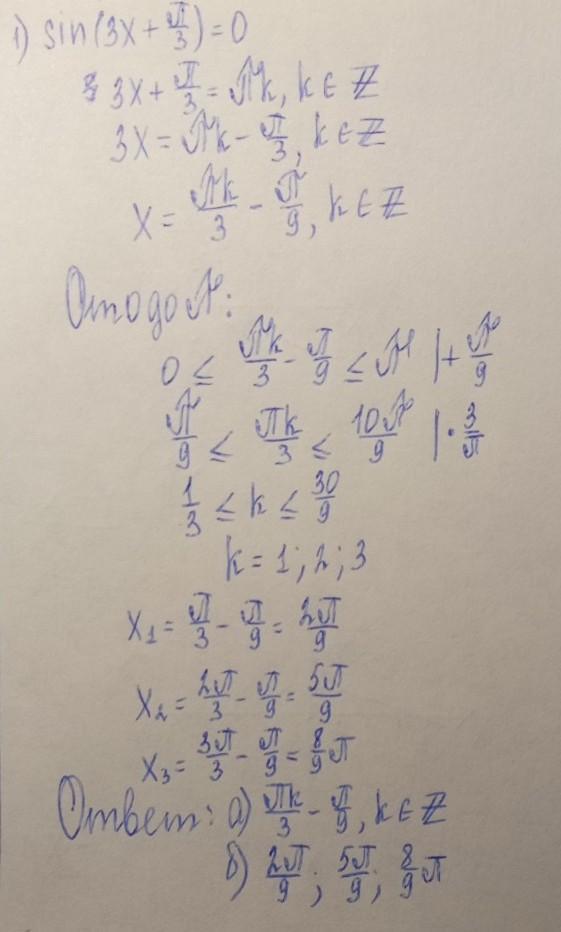 1) sin(3x + π/3) = 0
3x + π/3 = πk, k ∈ ℤ
3x = πk - π/3, k ∈ ℤ
x = πk/3 - π/9, k ∈ ℤ
От 0 до π:
0 ≤ πk/3 - π/9 ≤ π | + π/9
π/9 ≤ πk/3 ≤ 10π/9 | · 3/π
1/3 ≤ k ≤ 30/9
k = 1; 2; 3
x₁ = π/3 - π/9 = 2π/9
x₂ = 2π/3 - π/9 = 5π/9
x₃ = 3π/3 - π/9 = 8/9 π
Ответ: а) πk/3 - π/9, k ∈ ℤ
б) 2π/9; 5π/9; 8/9 π